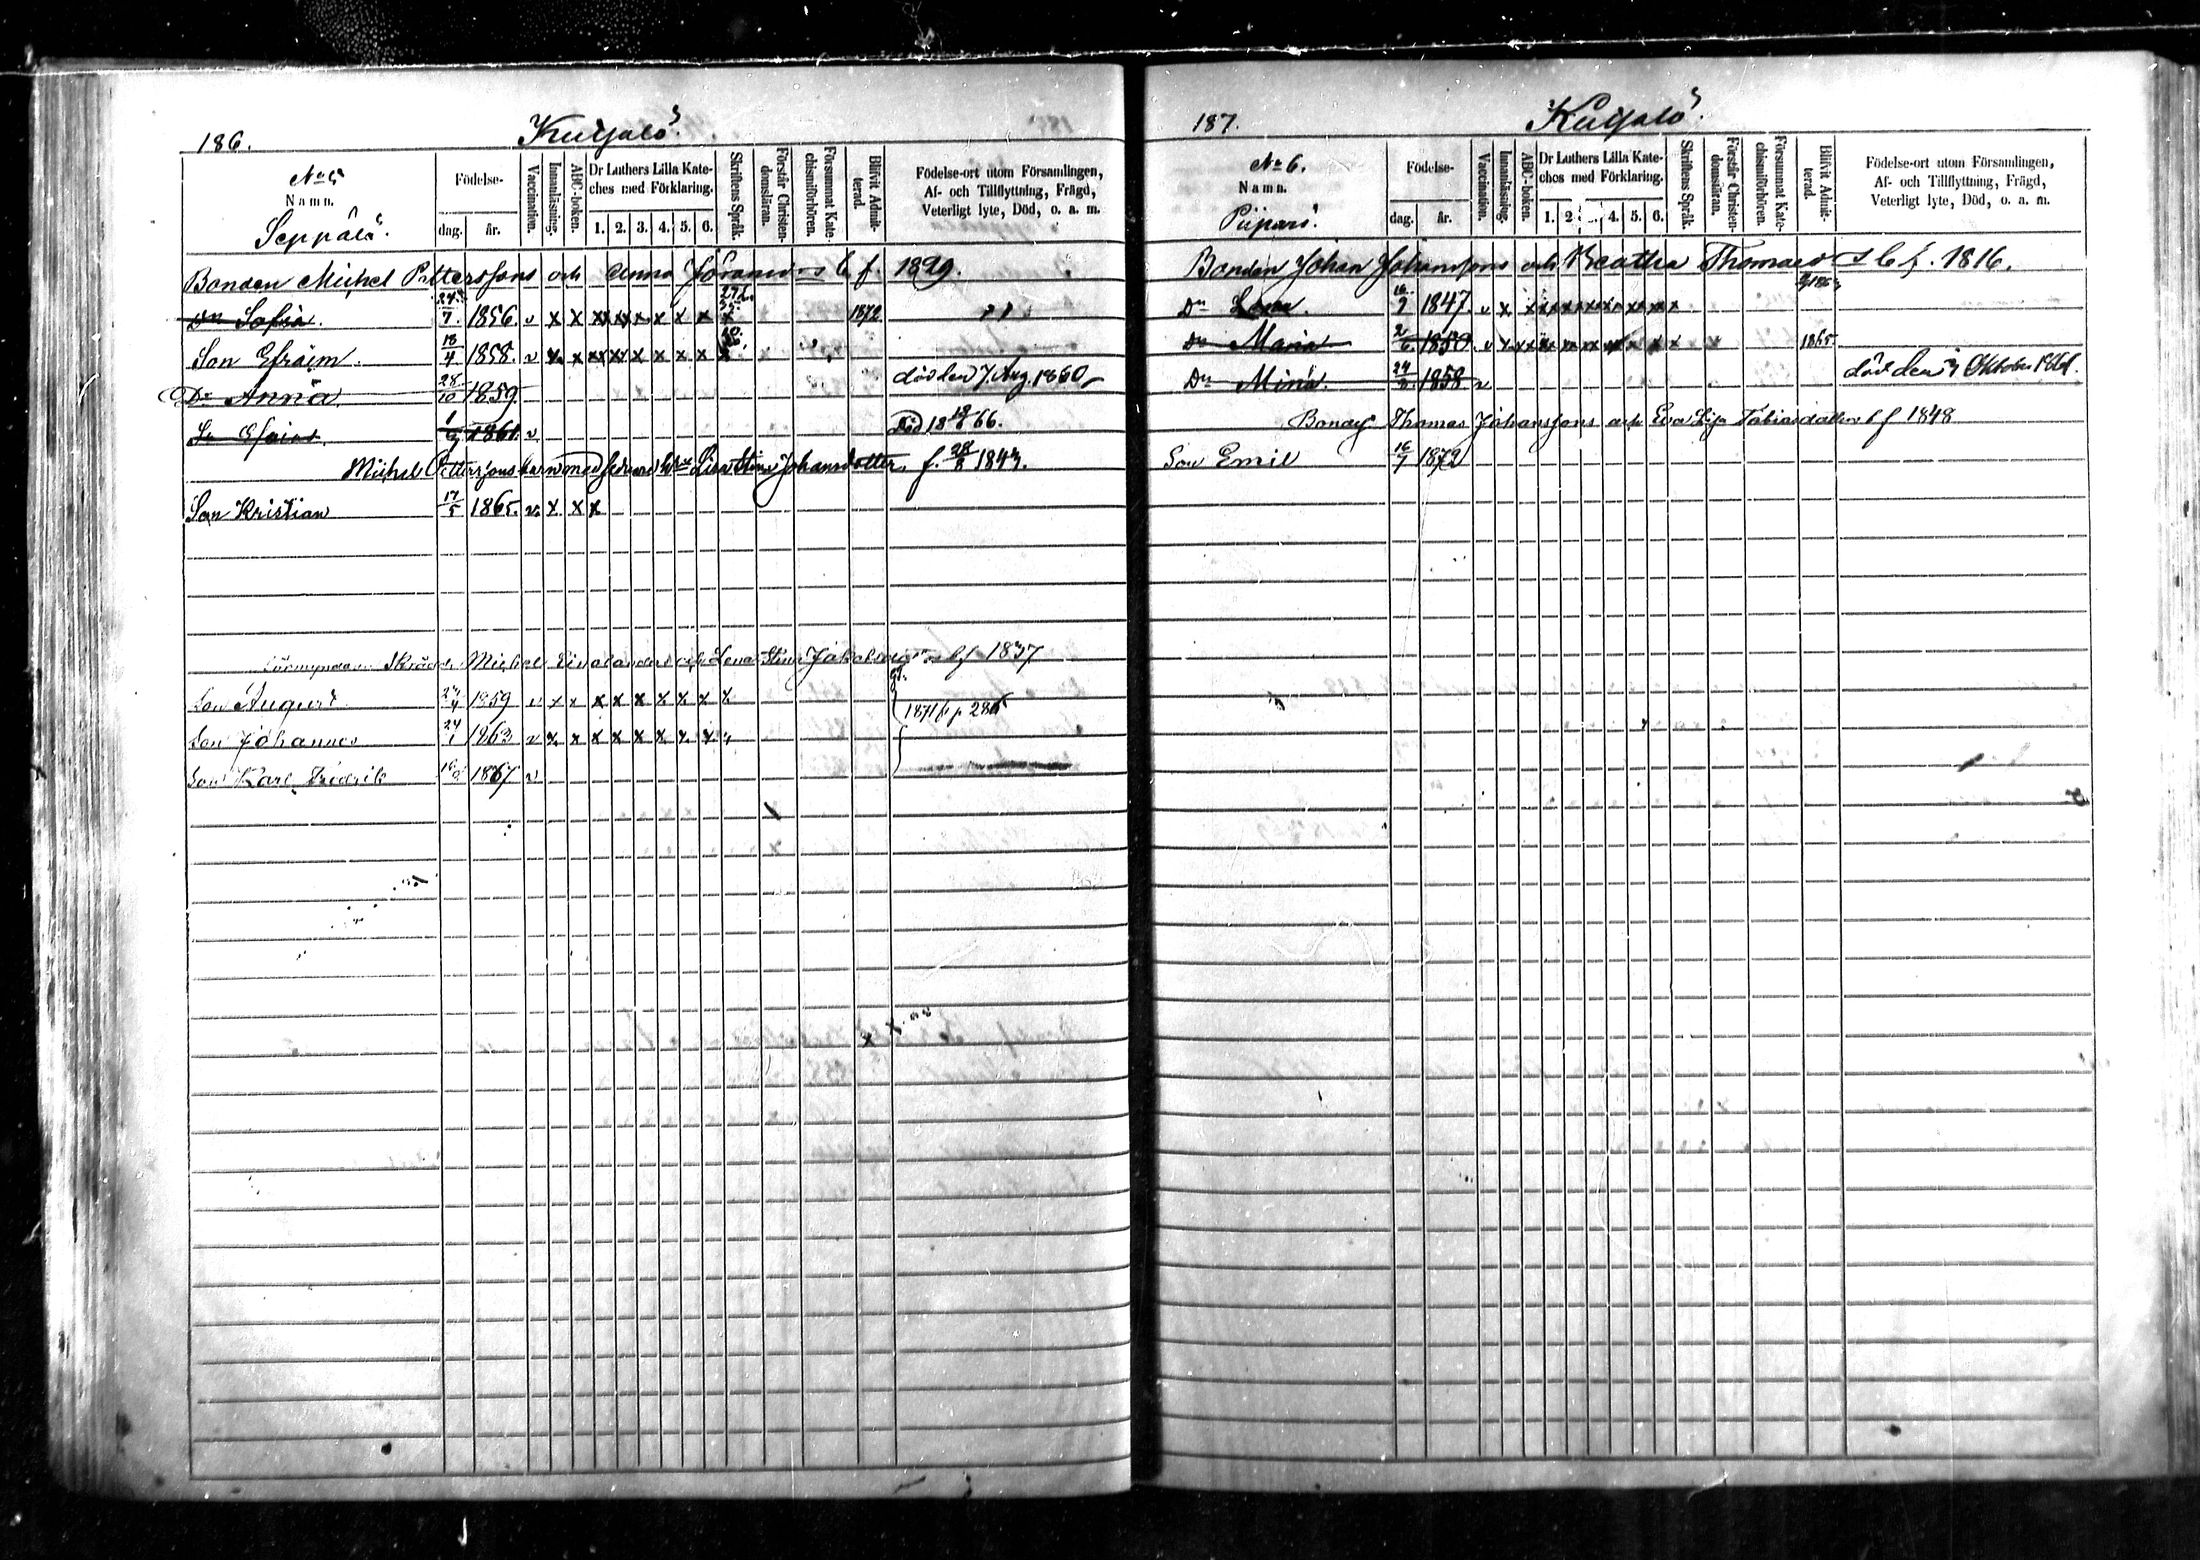 186.
Kuyalo
No 5
Namn.
Seppälä.
Födelse-
dag. år.
Vaccination.
Innanläsning.
ABC-boken.
Dr Luthers Lilla Kate-
ches med Förklaring.
1. 2. 3. 4. 5. 6.
Skriftens Språk.
Förstår Christen-
domsläran.
Försummat Kate-
chismiförhören.
Blifvit Admit-
terad.
Födelse-ort utom Församlingen,
Af- och Tillflyttning, Frägd,
Veterligt lyte, Död, o. a. m.
Bonden Michel Pettersson och Anna b f. 1829.
Dr Sofia. 24/7. 1856. v x x xx xx x x x x x 1872
Son Efraim. 18/4 1858. v x x xx xx x x x x
Dr Anna 28/10 1859 död den 7 Aug. 1860
Sn 1861. v Död 18 66.
Michel Petterssons barn med Lisa Stina Johansdotter f. 28/8 1843.
Son Kristian 17/5 1865. v. x x x
Michel och Lena Stina bf 1837
Son August 1859 v x x x x x x x x x
1871 p 286
Son Johannes 24/1 1863 v x x x x x x x x
Son Karl Fredrik 1867 v
187.
Kuyalo
No 6.
Namn.
Födelse-
dag. år.
Vaccination.
Innanläsning.
ABC-boken.
Dr Luthers Lilla Kate-
ches med Förklaring.
1. 2. 4. 5. 6.
Skriftens Språk.
Förstår Christen-
domsläran.
Försummat Kate-
chismiförhören.
Blifvit Admit-
terad.
Födelse-ort utom Församlingen,
Af- och Tillflyttning, Frägd,
Veterligt lyte, Död, o. a. m.
Bonden Johan Johansson och Beatha Thomasd b f. 1816.
Dr Lena. 1847. v x
Dr Maria 2/6 1850. v 1865
Dr Mina. 24/8 1858 v död den Oktober
Thomas Johanssons och Eva Lisa b f 1848
Son Emil 16/7 1872